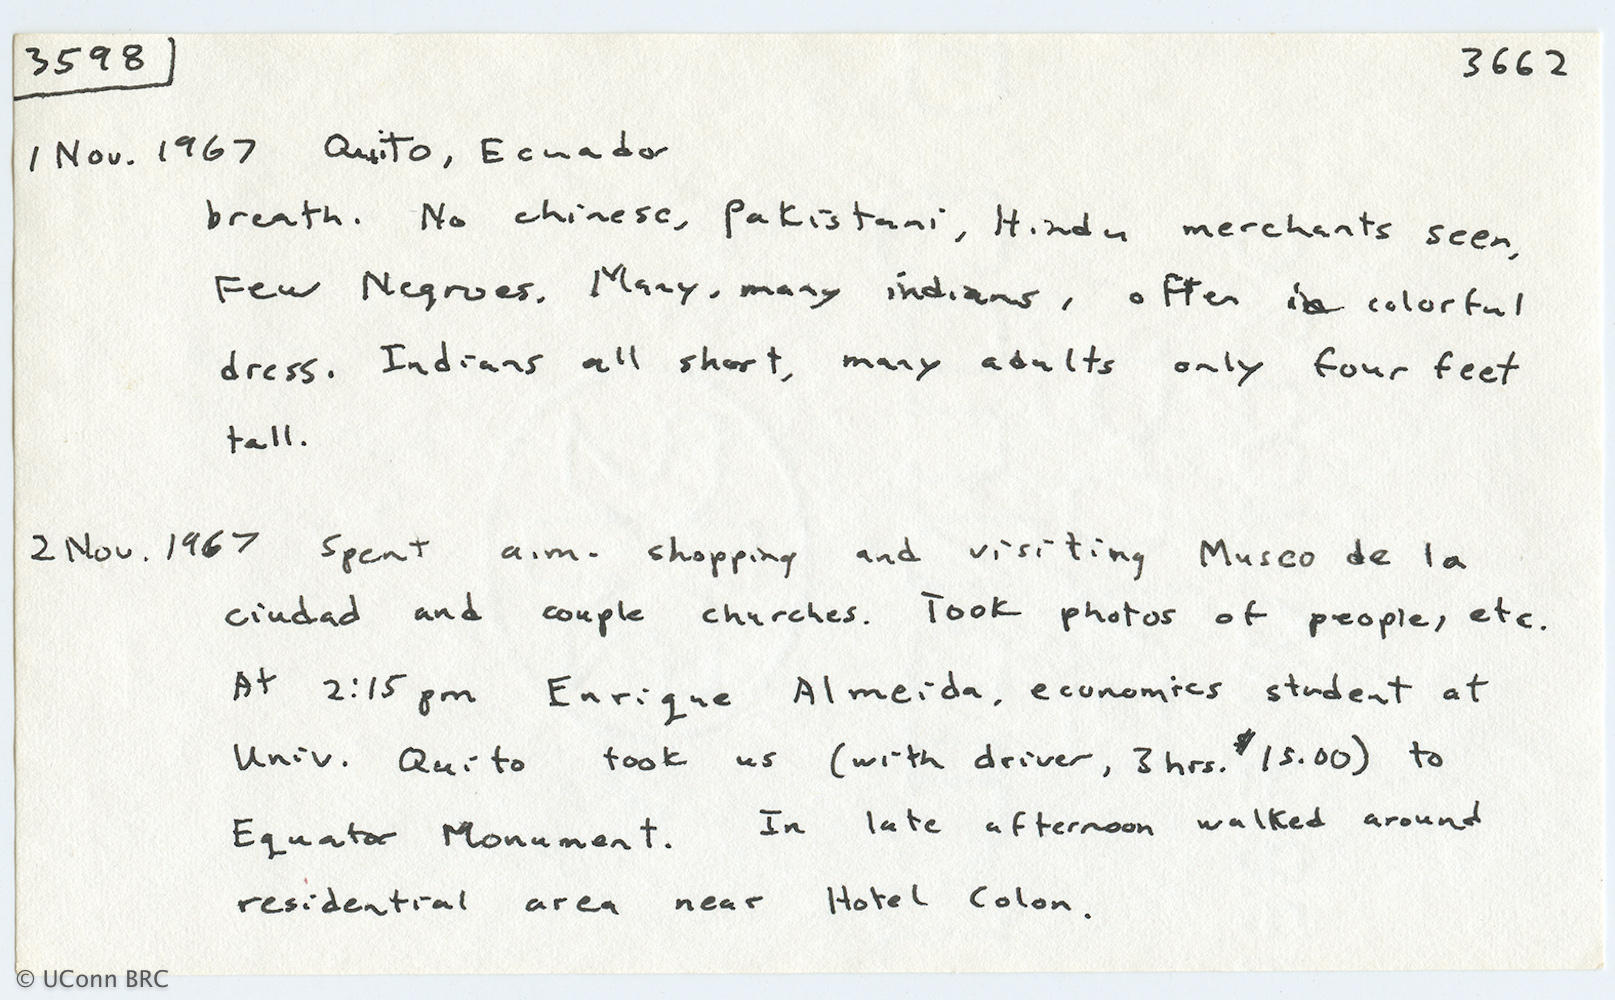 3598 3662
1 Nov. 1967 Quito, Ecuador
breath. No chinese, Pakistani, Hindu merchants seen,
Few Negroes. Many, many indians, often in colorful
dress. Indians all short, many adults only four feet
tall.
2 Nov. 1967 Spent a.m. shopping and visiting Museo de la
ciudad and couple churches. Took photos of people, etc.
At 2:15 pm Enrique Almeida, economics student at
Univ. Quito took us (with driver, 3 hrs. $15.00) to
Equator Monument. In late afternoon walked around
residential area near Hotel Colon.
© UConn BRC